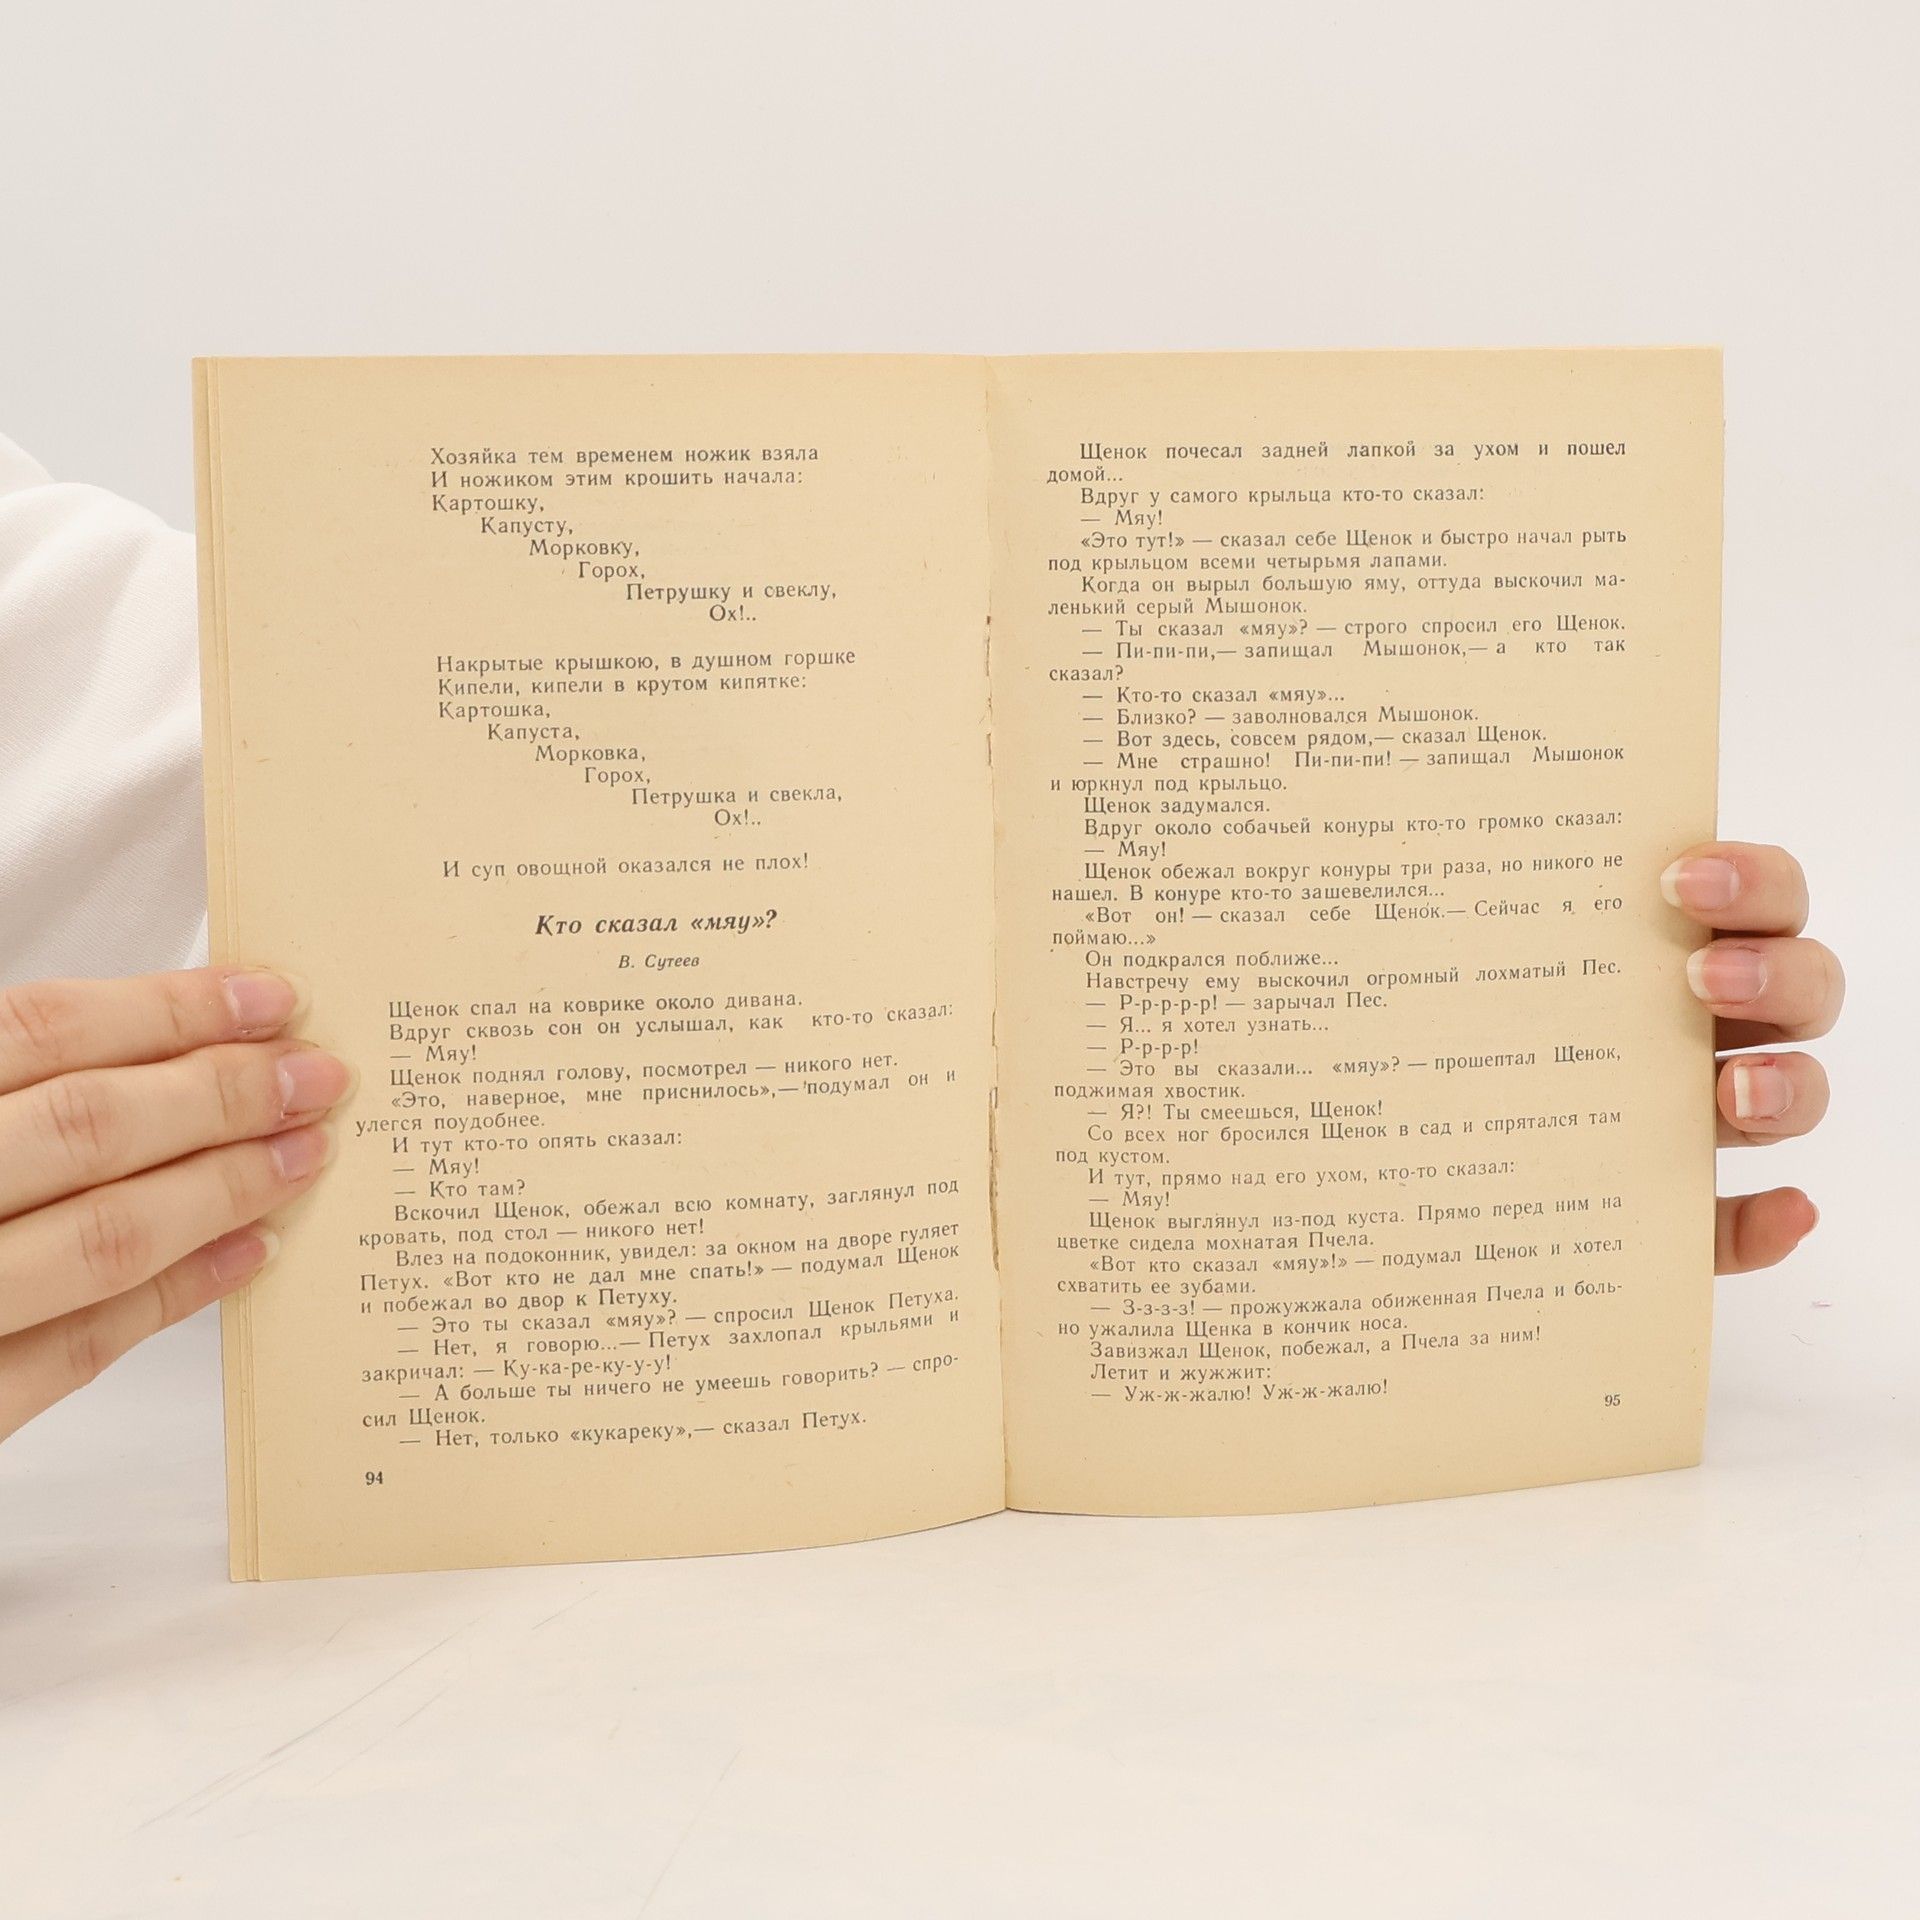 Хозяйка тем временем ножик взяла
И ножиком этим крошить начала:
Картошку,
Капусту,
Морковку,
Горох,
Петрушку и свеклу,
Ох!..
Накрытые крышкою, в душном горшке
Кипели, кипели в крутом кипятке:
Картошка,
Капуста,
Морковка,
Горох,
Петрушка и свекла,
Ох!..
И суп овощной оказался не плох!
Кто сказал «мяу»?
В. Сутеев
Щенок спал на коврике около дивана.
Вдруг сквозь сон он услышал, как кто-то сказал:
— Мяу!
Щенок поднял голову, посмотрел — никого нет.
«Это, наверное, мне приснилось»,— подумал он и
улегся поудобнее.
И тут кто-то опять сказал:
— Мяу!
— Кто там?
Вскочил Щенок, обежал всю комнату, заглянул под
кровать, под стол — никого нет!
Влез на подоконник, увидел: за окном на дворе гуляет
Петух. «Вот кто не дал мне спать!» — подумал Щенок
и побежал во двор к Петуху.
— Это ты сказал «мяу»? — спросил Щенок Петуха.
— Нет, я говорю...— Петух захлопал крыльями и
закричал: — Ку-ка-ре-ку-у-у!
— А больше ты ничего не умеешь говорить? — спро-
сил Щенок.
— Нет, только «кукареку»,— сказал Петух.
94
Щенок почесал задней лапкой за ухом и пошел
домой...
Вдруг у самого крыльца кто-то сказал:
— Мяу!
«Это тут!» — сказал себе Щенок и быстро начал рыть
под крыльцом всеми четырьмя лапами.
Когда он вырыл большую яму, оттуда выскочил ма-
ленький серый Мышонок.
— Ты сказал «мяу»? — строго спросил его Щенок.
— Пи-пи-пи,— запищал Мышонок,— а кто так
сказал?
— Кто-то сказал «мяу»...
— Близко? — заволновался Мышонок.
— Вот здесь, совсем рядом,— сказал Щенок.
— Мне страшно! Пи-пи-пи! — запищал Мышонок
и юркнул под крыльцо.
Щенок задумался.
Вдруг около собачьей конуры кто-то громко сказал:
— Мяу!
Щенок обежал вокруг конуры три раза, но никого не
нашел. В конуре кто-то зашевелился...
«Вот он! — сказал себе Щенок.— Сейчас я его
поймаю...»
Он подкрался поближе...
Навстречу ему выскочил огромный лохматый Пес.
— Р-р-р-р-р! — зарычал Пес.
— Я... я хотел узнать...
— Р-р-р-р!
— Это вы сказали... «мяу»? — прошептал Щенок,
поджимая хвостик.
— Я?! Ты смеешься, Щенок!
Со всех ног бросился Щенок в сад и спрятался там
под кустом.
И тут, прямо над его ухом, кто-то сказал:
— Мяу!
Щенок выглянул из-под куста. Прямо перед ним на
цветке сидела мохнатая Пчела.
«Вот кто сказал «мяу»!» — подумал Щенок и хотел
схватить ее зубами.
— З-з-з-з! — прожужжала обиженная Пчела и боль-
но ужалила Щенка в кончик носа.
Завизжал Щенок, побежал, а Пчела за ним!
Летит и жужжит:
— Уж-ж-жалю! Уж-ж-жалю!
95